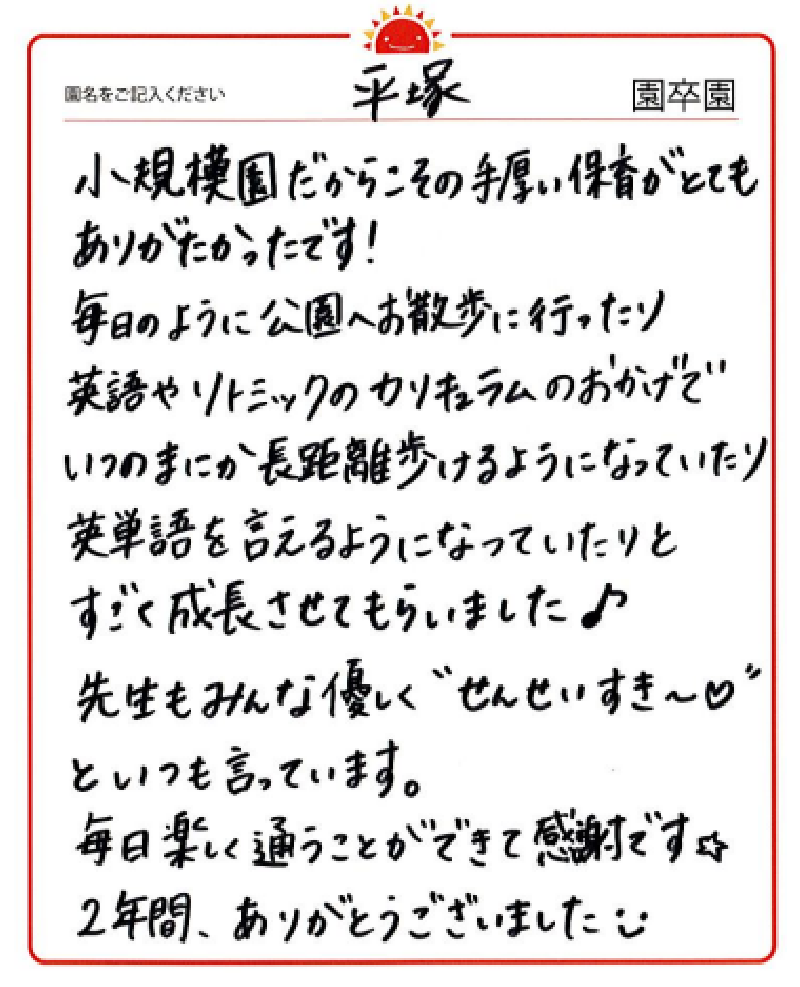 園名をご記入ください 平塚 園卒園
小規模園だからこその手厚い保育がとても
ありがたかったです!
毎日のように公園へお散歩に行ったり
英語やリトミックのカリキュラムのおかげで
いつのまにか長距離歩けるようになっていたり
英単語を言えるようになっていたりと
すごく成長させてもらいました♪
先生もみんな優しく〝せんせいすき〜♡〟
といつも言っています。
毎日楽しく通うことができて感謝です☆
2年間、ありがとうございました